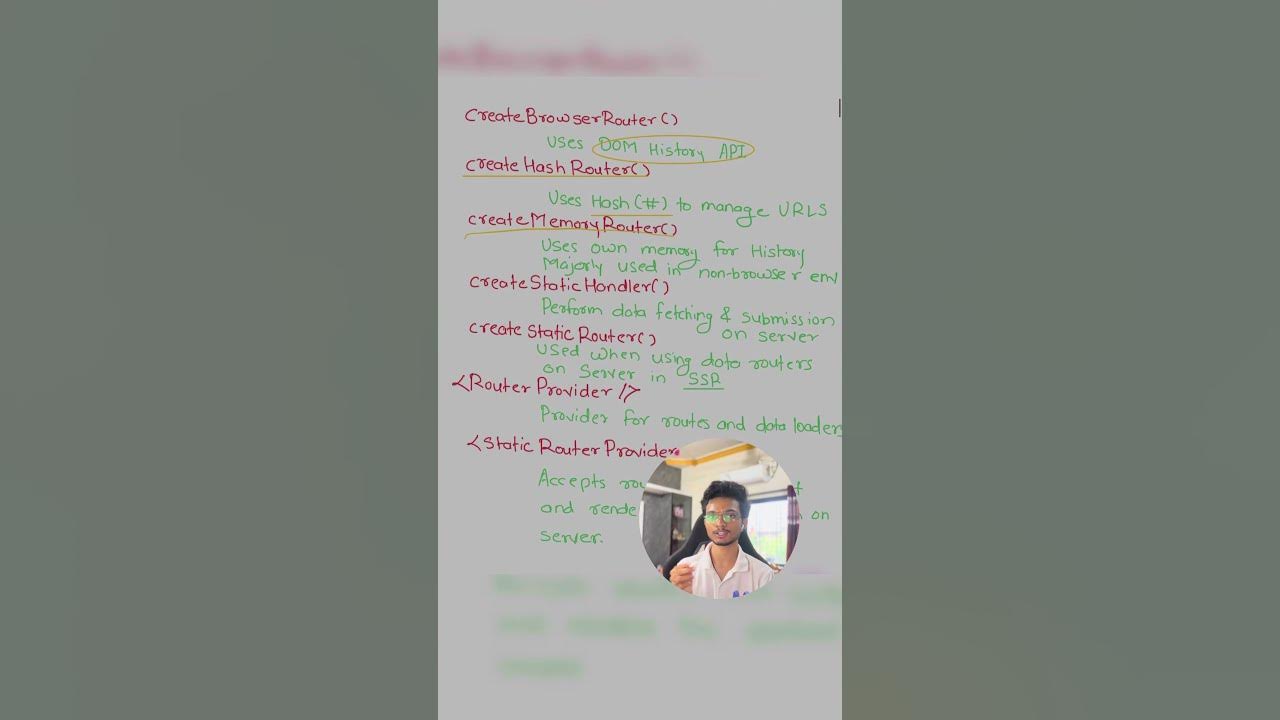 createBrowserRouter()
Uses DOM History API
createHashRouter()
Uses Hash(#) to manage URLS
createMemoryRouter()
Uses own memory for History
Majorly used in non-browser env
createStaticHandler()
Perform data fetching & submission
on server
createStaticRouter()
Used when using data routers
on Server in SSR
<RouterProvider />
Provider for routes and data loaders
<StaticRouterProvider
Accepts
and
on
server.